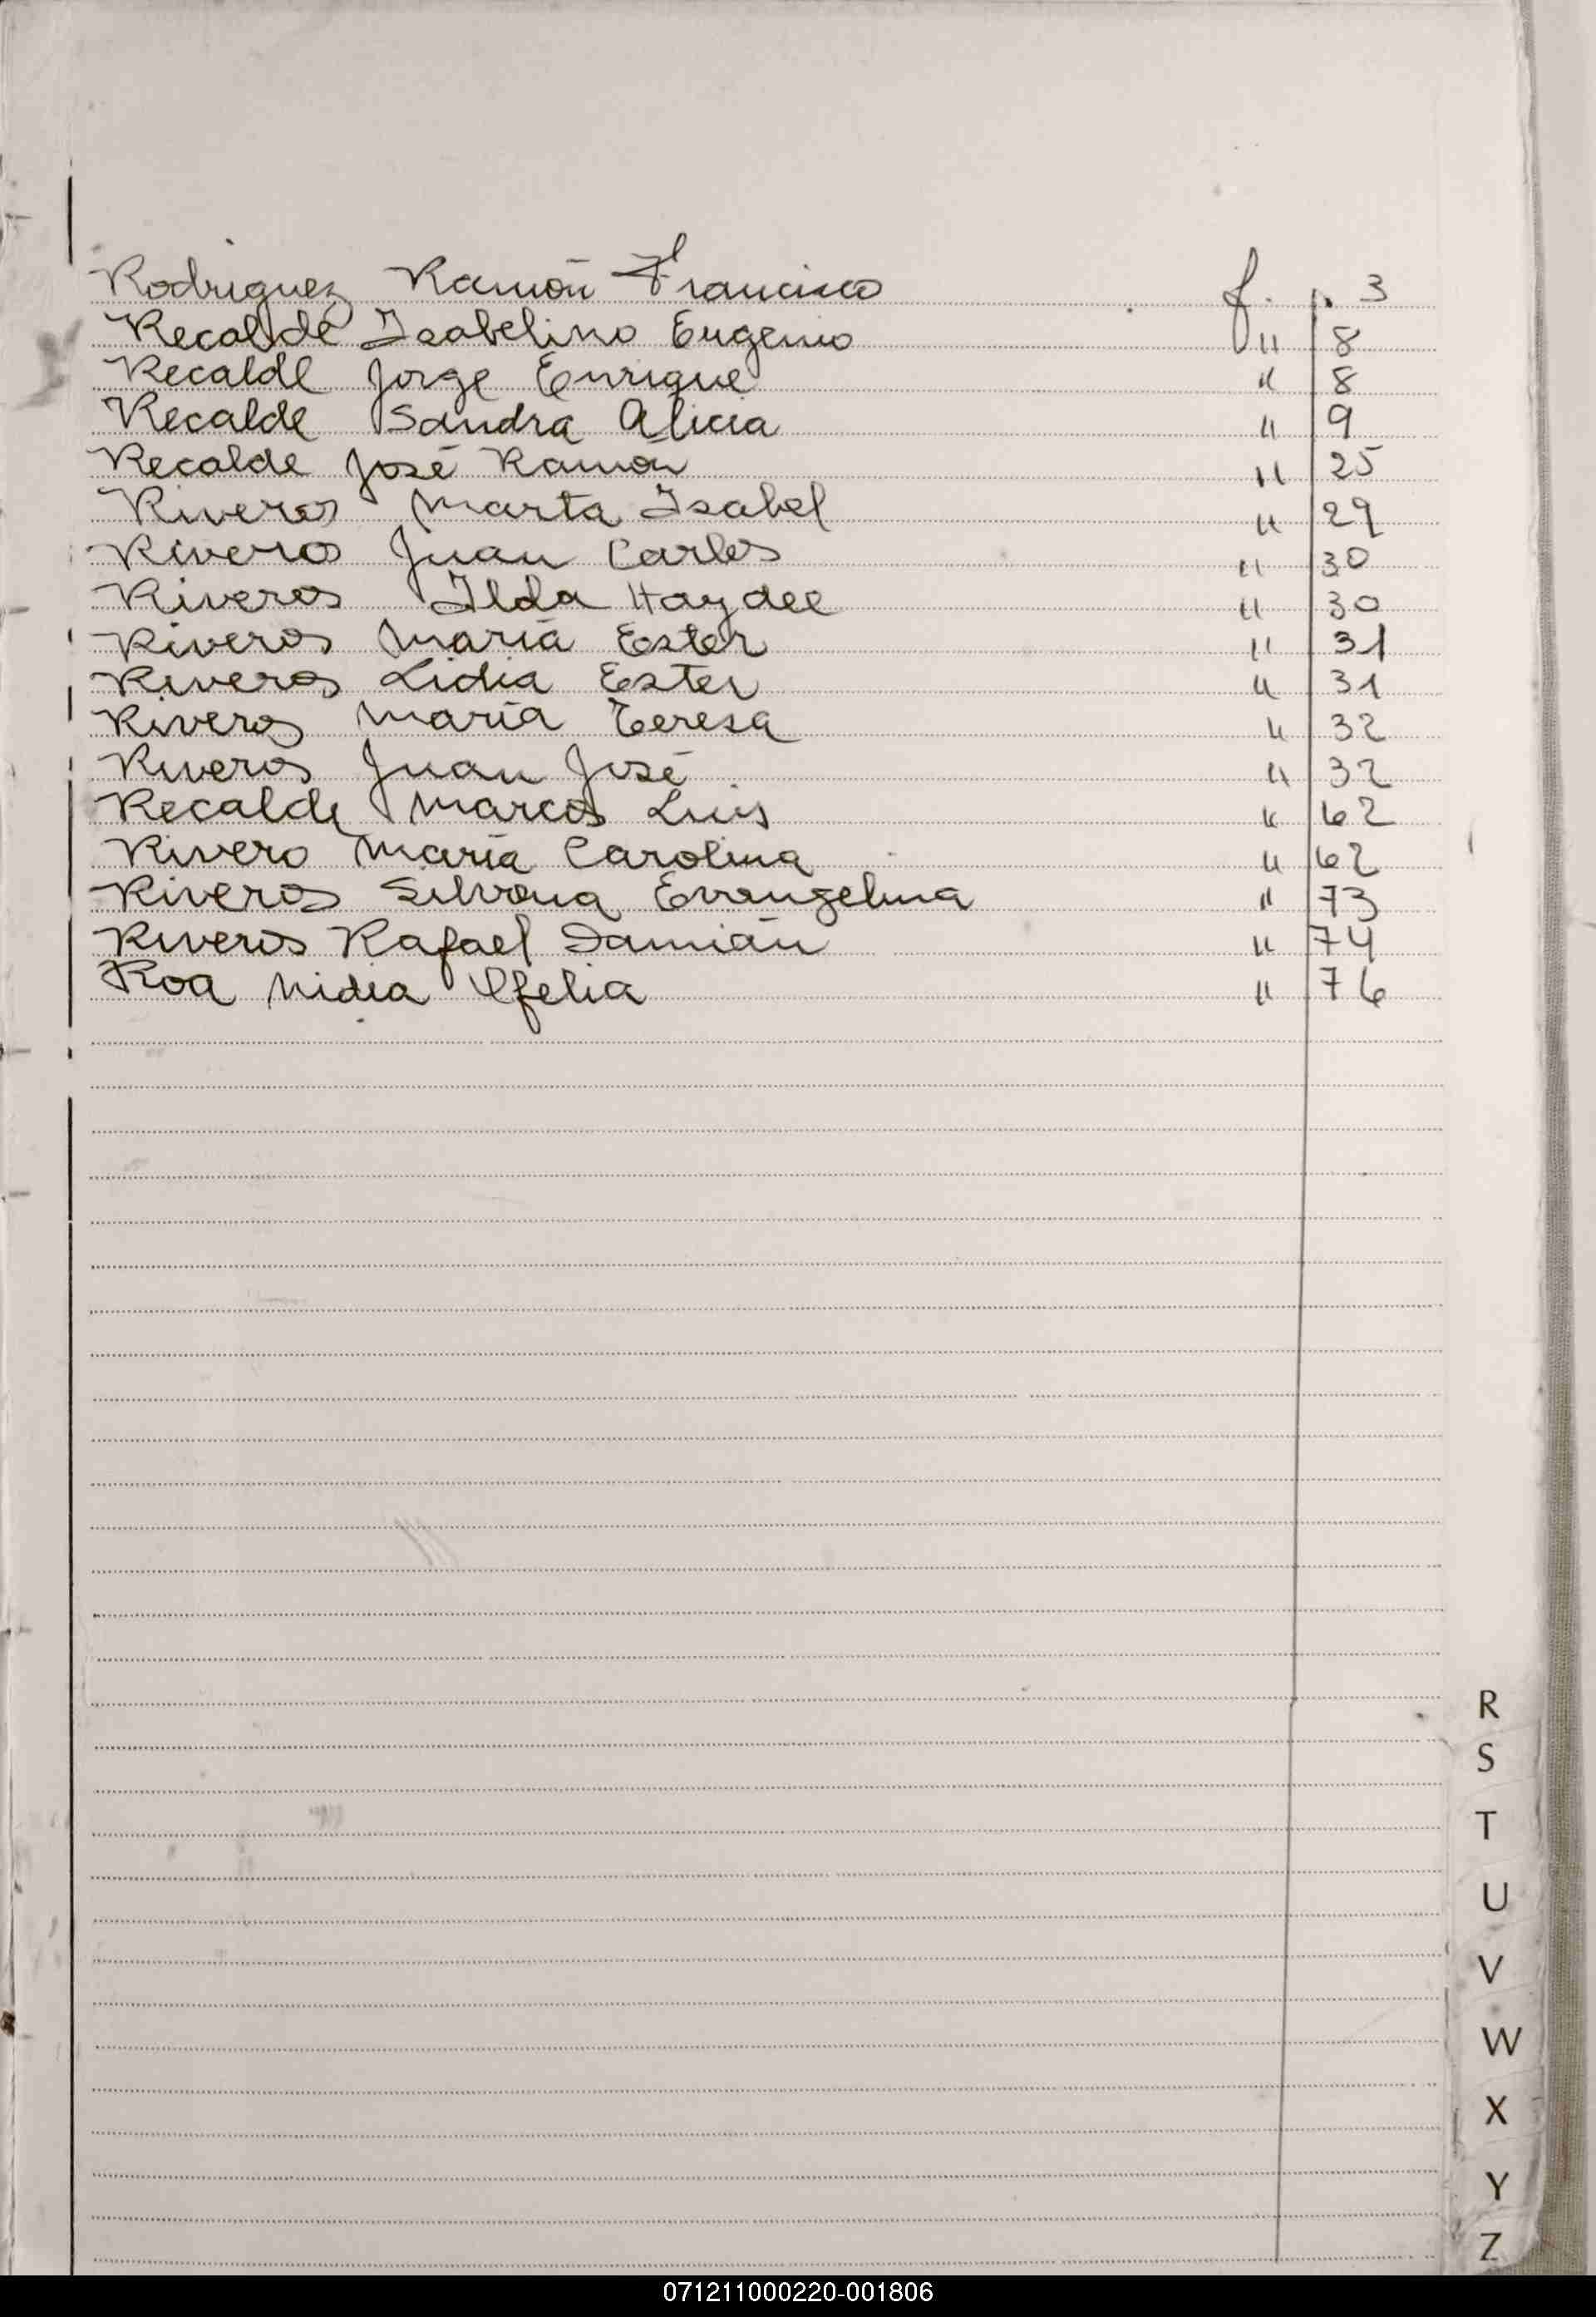 Rodriguez Ramón Francisco f. p. 3
Recalde Isabelino Eugenio " 8
Recalde Jorge Enrique " 8
Recalde Sandra Alicia " 9
Recalde José Ramón " 25
Riveros Marta Isabel " 29
Riveros Juan Carlos " 30
Riveros Ilda Haydee " 30
Riveros María Ester " 31
Riveros Lidia Ester " 31
Riveros María Teresa " 32
Riveros Juan José " 32
Recalde Marcos Luis " 62
Rivero María Carolina " 62
Riveros Silvana Evangelina " 73
Riveros Rafael Damián " 74
Roa Nidia Ofelia " 76
R
S
T
U
V
W
X
Y
Z
071211000220-001806